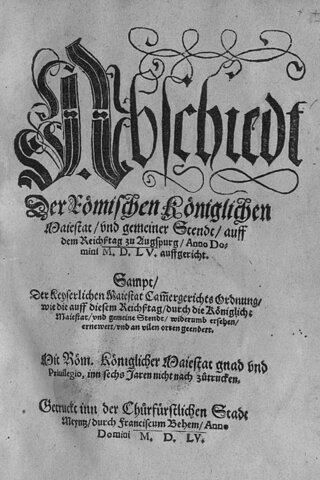 Abschiedt
Der Römischen Königlichen
Maiestat/ vnd gemeiner Stendt/ auff
dem Reichßtag zu Augspurg/ Anno Do-
mini M. D. LV. auffgericht.
Sampt/
Der Keyserlichen Maiestat Cam̃ergerichts Ordnung/
wie die auff diesem Reichßtag/ durch die Königlich:
Maiestat/ vnd gemeine Stende/ widerumb ersehen/
ernewert/ vnd an vilen orten geendert.
Mit Röm. Königlicher Maiestat gnad vnd
Priuilegio, inn sechs Jaren nicht nach zütrucken.
Getruckt inn der Chürfürstlichen Stadt
Meyntz/ durch Franciscum Behem/ Anno
Domini M. D. LV.